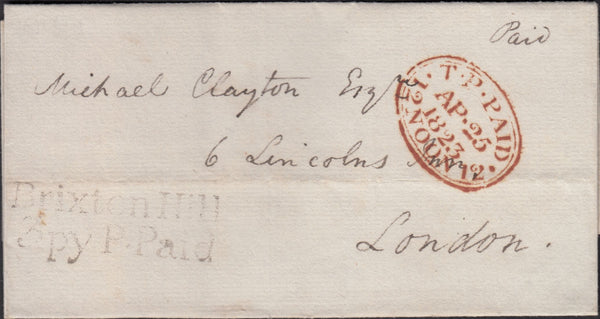 Paid
Michael Clayton Esqr
6 Lincolns Inn
London.
12·NOON·12
T.P.PAID
AP·25
1823
Brixton Hill
3py P.Paid